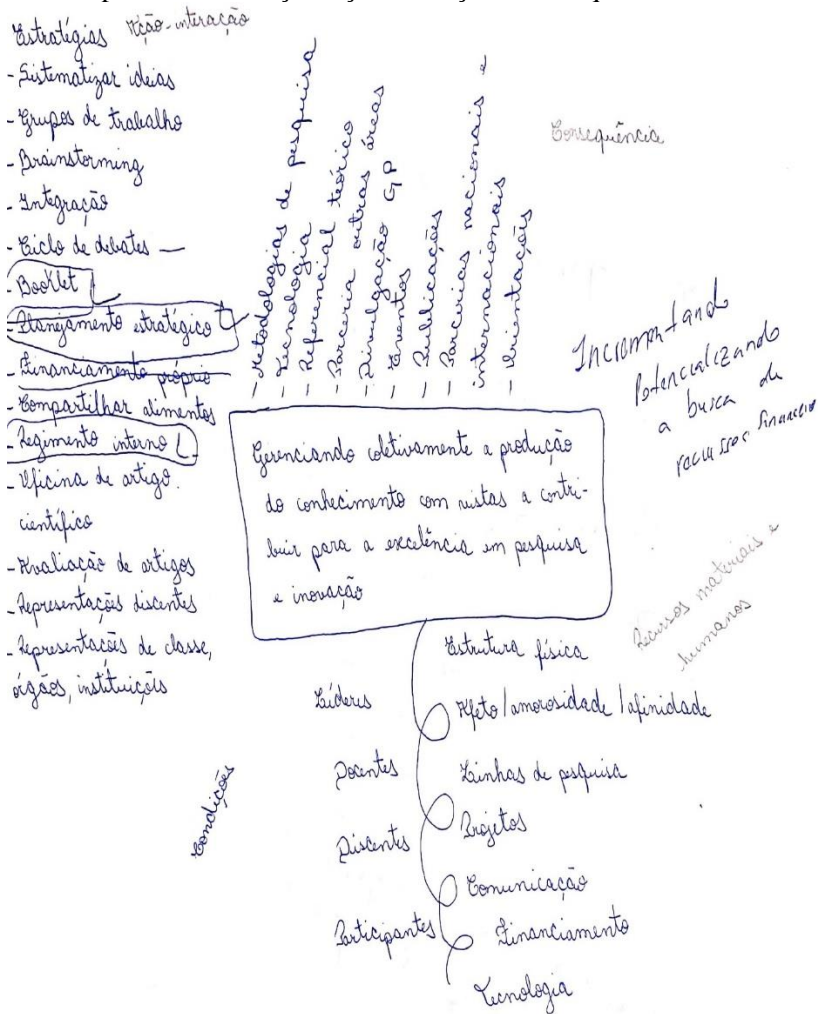 Estratégias Ação-interação
- Sistematizar ideias
- Grupos de trabalho
- Brainstorming
- Integração
- Ciclo de debates —
- Booklet
- Planejamento estratégico
- Financiamento próprio
- Compartilhar alimentos
- Regimento interno
- Oficina de artigo
científico
- Avaliação de artigos
- Representações discentes
- Representações de classe,
órgãos, instituições
- Metodologias de pesquisa
- Tecnologia
- Referencial teórico
- Parceria outras áreas
- Divulgação GP
- Eventos
- Publicações
- Parcerias nacionais e
internacionais
- Orientações
Consequência
Incrementando
Potencializando
a busca de
recursos financeiro
Gerenciando coletivamente a produção
do conhecimento com vistas a contri-
buir para a excelência em pesquisa
e inovação
Recursos materiais e
humanos
Condições
Líderes
Docentes
Discentes
Participantes
Estrutura física
Afeto/amorosidade/afinidade
Linhas de pesquisa
Projetos
Comunicação
Financiamento
Tecnologia